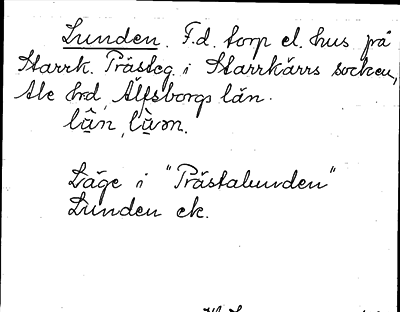 Lunden. F.d. torp el. hus på
Starrk. Prästeg. i Starrkärrs socken,
Ale hrd, Älfsborgs län.
Läge i "Prästalunden"
Lunden ek.